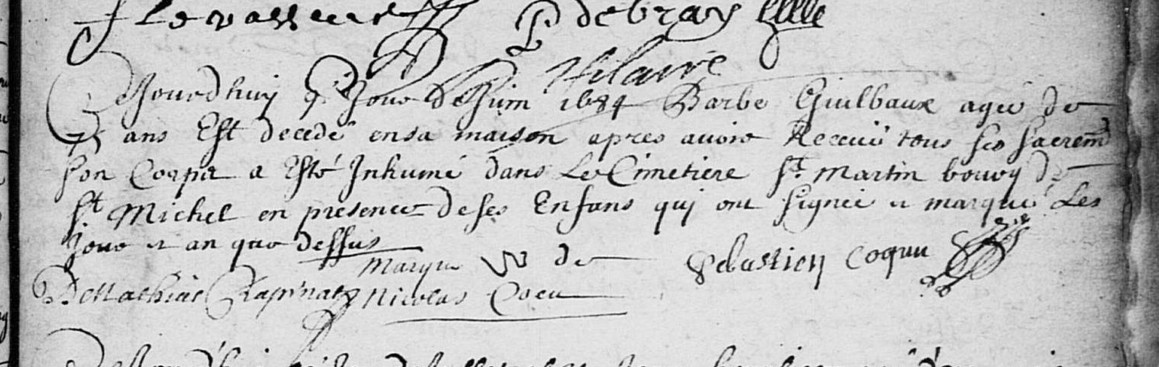 Levasseur P debray
Hilaire
Ajourdhuy 9e Jour de Juin 1684 Barbe Guilbaux agée de
75 ans Est decedé en sa maison apres avoir Receue tous ses sacremt
son Corps a Esté Inhumé dans Le Cimetiere st Martin bourg de
st Michel en presence de ses Enfans qui ont signée et marqué Les
Jour et an que dessus
Marque de Sebastien Coquu
De Mathias Nicolas Cocu